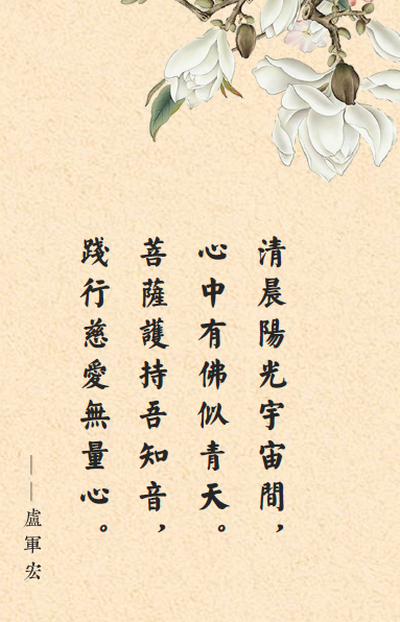 清晨陽光宇宙間，
心中有佛似青天。
菩薩護持吾知音，
踐行慈愛無量心。
——盧軍宏